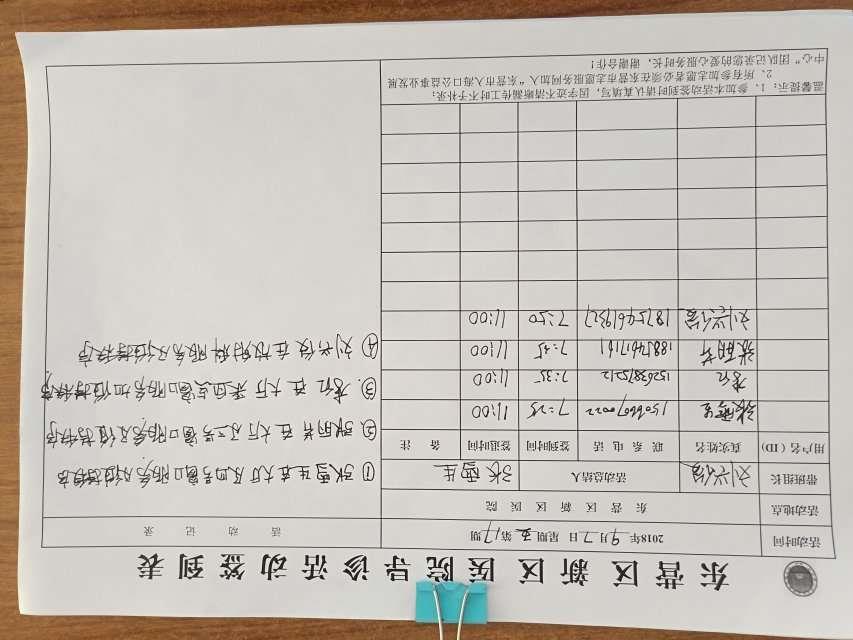 东营区新区医院导诊活动签到表
活动时间 2018年9月7日 星期五 第17期 活动记录
活动地点 东营区新区医院
带班组长 活动总结人 张雪生
用户名(ID) 真实姓名 联系电话 签到时间 签退时间 备注
张雪生 15066070022 7:25 11:00
7:35 11:00
7:45 11:00
7:50 11:00
温馨提示:1、参加本活动签到时请认真填写,因字迹不清晰漏传工时不予补录;
2、所有参加志愿者必须在东营市志愿服务网加入“东营市入海口公益事业发展
中心”团队记录您的爱心服务时长,谢谢合作!
① 张雪生在大厅及四号窗口服务及维持秩序
② 在大厅二三号窗口服务及维持秩序
③ 在大厅采血点窗口服务加维持秩序
④ 在放射科服务及维持秩序